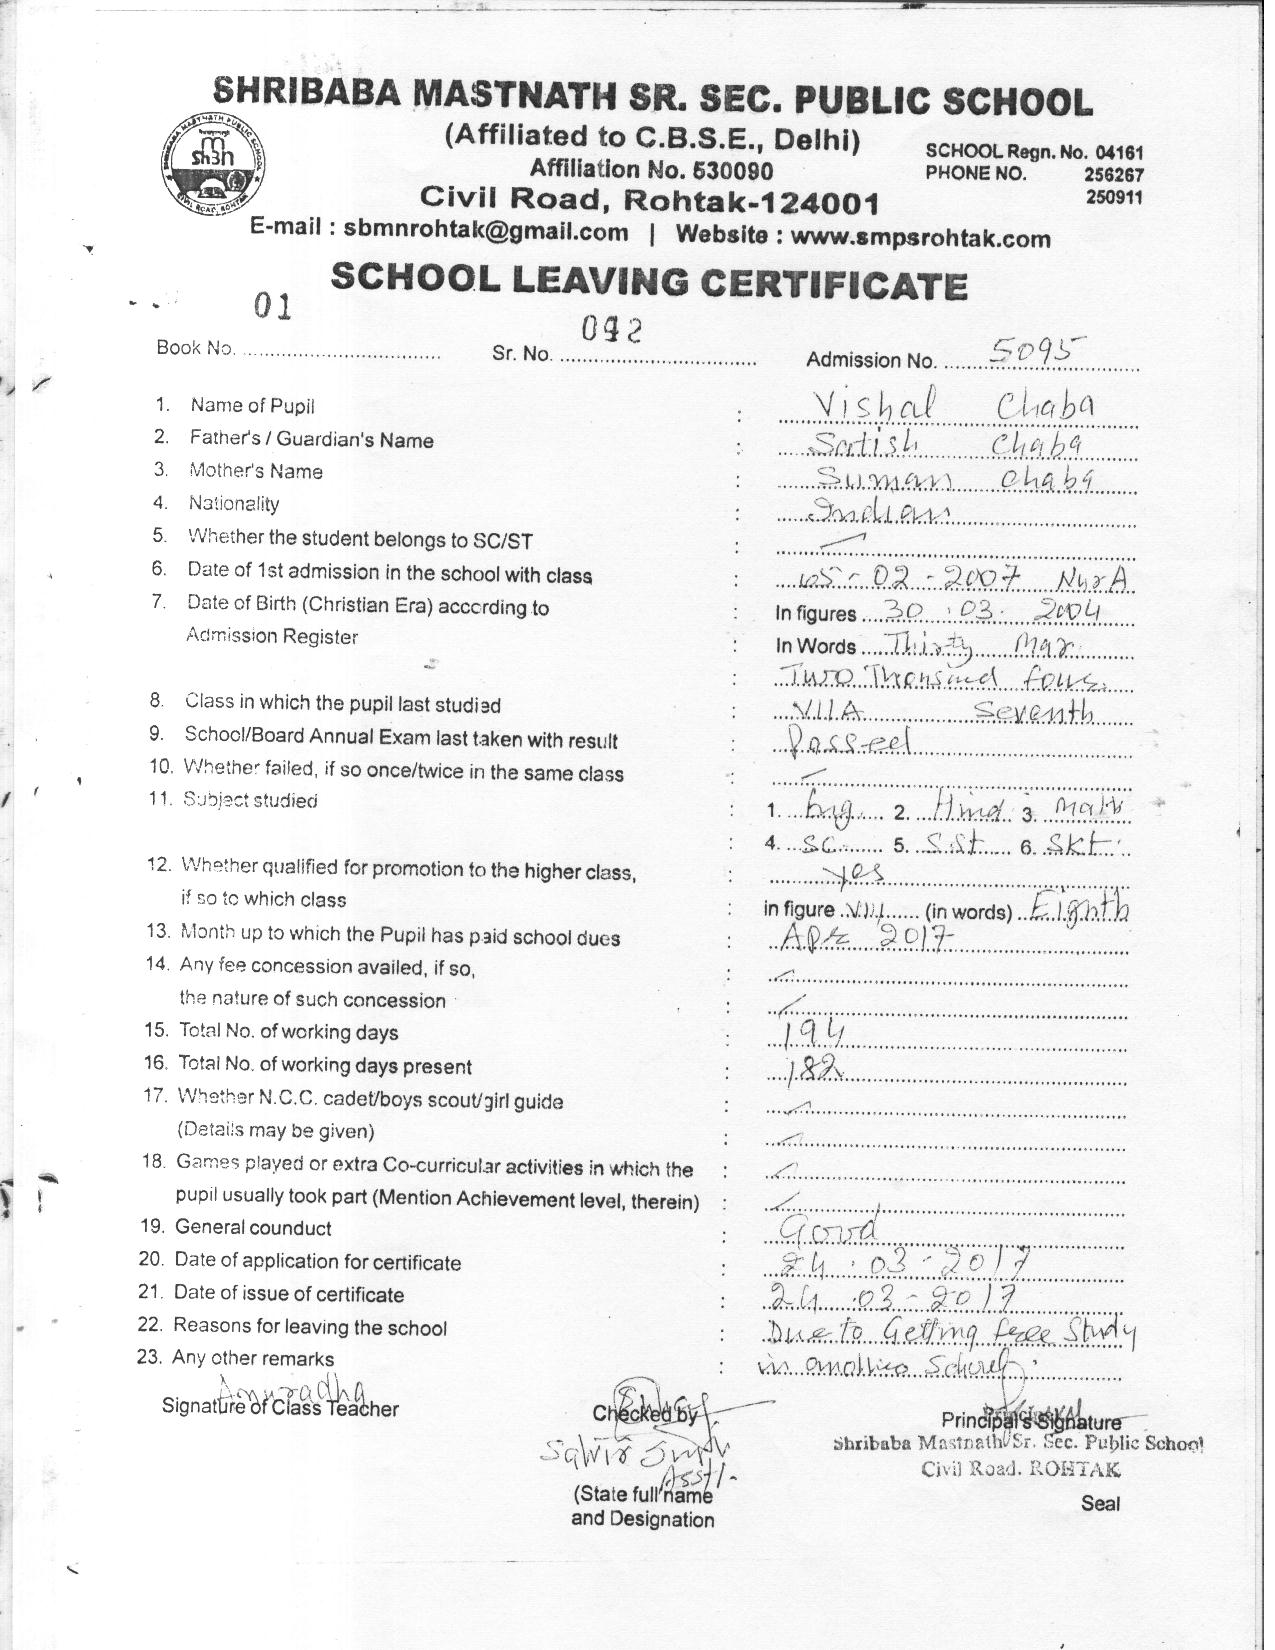 SHRIBABA MASTNATH SR. SEC. PUBLIC SCHOOL
(Affiliated to C.B.S.E., Delhi)
Affiliation No. 530090
SCHOOL Regn. No. 04161
PHONE NO. 256267
250911
Civil Road, Rohtak-124001
E-mail : sbmnrohtak@gmail.com | Website : www.smpsrohtak.com
SCHOOL LEAVING CERTIFICATE
Book No. 01 Sr. No. 092 Admission No. 5095
1. Name of Pupil : Vishal Chaba
2. Father's / Guardian's Name : Satish Chaba
3. Mother's Name : Suman Chaba
4. Nationality : Indian
5. Whether the student belongs to SC/ST :
6. Date of 1st admission in the school with class : 05-02-2007 NurA
7. Date of Birth (Christian Era) according to : In figures 30.03.2004
Admission Register : In Words Thirty Mar
: Two Thousand four.
8. Class in which the pupil last studied : VIIA Seventh
9. School/Board Annual Exam last taken with result : Passed
10. Whether failed, if so once/twice in the same class :
11. Subject studied : 1. Eng. 2. Hind 3. Math
: 4. SC. 5. S.St 6. SKt.
12. Whether qualified for promotion to the higher class, : yes
if so to which class : in figure VIII (in words) Eighth
13. Month up to which the Pupil has paid school dues : Apr 2017
14. Any fee concession availed, if so, :
the nature of such concession :
15. Total No. of working days : 194
16. Total No. of working days present : 182
17. Whether N.C.C. cadet/boys scout/girl guide :
(Details may be given) :
18. Games played or extra Co-curricular activities in which the :
pupil usually took part (Mention Achievement level, therein) :
19. General counduct : Good
20. Date of application for certificate : 24.03-2017
21. Date of issue of certificate : 24.03-2017
22. Reasons for leaving the school : Due to Getting free Study
23. Any other remarks : in another School.
Anuradha
Signature of Class Teacher Checked by Principal's Signature
Shribaba Mastnath Sr. Sec. Public School
Civil Road. ROHTAK
Asstt.
(State full name
and Designation
Seal